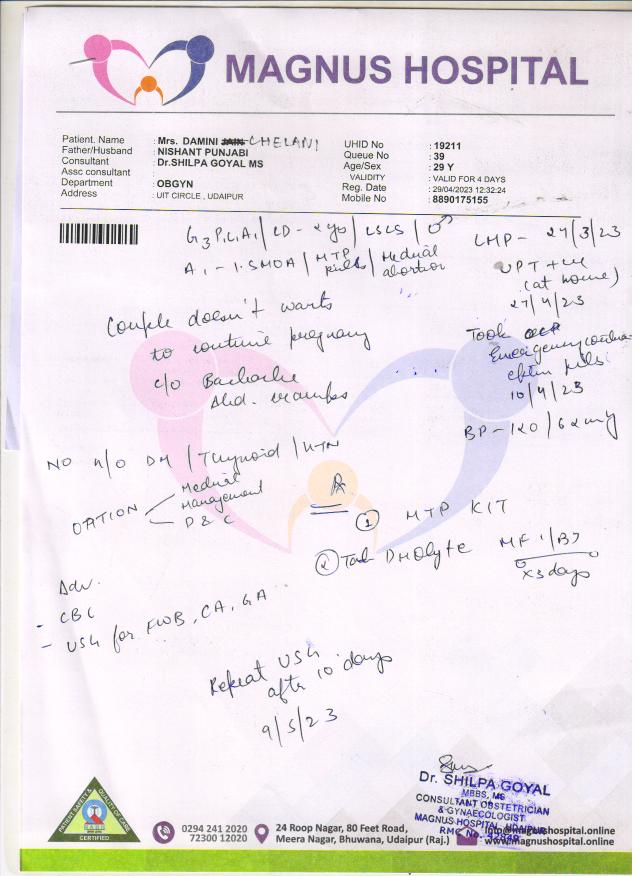 MAGNUS HOSPITAL
Patient. Name : Mrs. DAMINI JAIN CHELANI
Father/Husband : NISHANT PUNJABI
Consultant : Dr.SHILPA GOYAL MS
Assc consultant :
Department : OBGYN
Address : UIT CIRCLE , UDAIPUR
UHID No : 19211
Queue No : 39
Age/Sex : 29 Y
VALIDITY : VALID FOR 4 DAYS
Reg. Date : 29/04/2023 12:32:24
Mobile No : 8890175155
G3P1L1A1 / LD - 2 yrs / LSCS / ♂
A1 - 1.5MOA / MTP pills / Medical abortion
LMP - 27/3/23
UPT +ve
(at home)
27/4/23
Couple doesn't wants
to continue pregnancy
c/o Backache
Abd. cramps
Took
Emergency contra
ception pills
10/4/23
BP - 120/62 mmHg
NO H/O DM / Thyroid / HTN
OPTION
Medical
Management
D & C
① MTP KIT
② Tab
x3 days
Adv.
- CBC
- USG for FWB, CA, GA
Repeat USG
after 10 days
9/5/23
Dr. SHILPA GOYAL
MBBS, MS
CONSULTANT OBSTETRICIAN
& GYNAECOLOGIST
MAGNUS HOSPITAL, UDAIPUR
RMC No.
PATIENT SAFETY & QUALITY OF CARE
CERTIFIED
0294 241 2020
72300 12020
24 Roop Nagar, 80 Feet Road,
Meera Nagar, Bhuwana, Udaipur (Raj.)
info@magnushospital.online
www.magnushospital.online